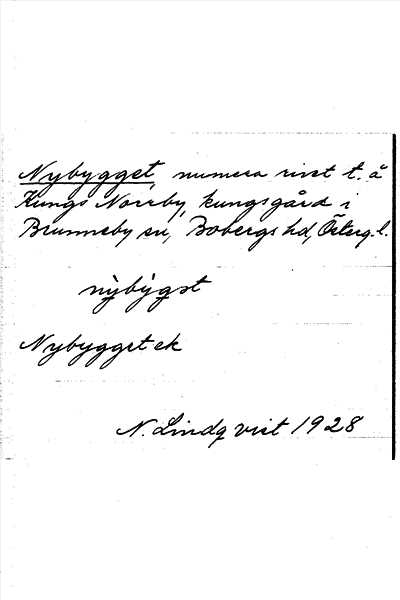 Nybygget, numera rivet t. å
Kungs Norrby, kungsgård i
Brunneby sn, Bobergs hd, Österg. l.
Nybygget ek
N. Lindqvist 1928